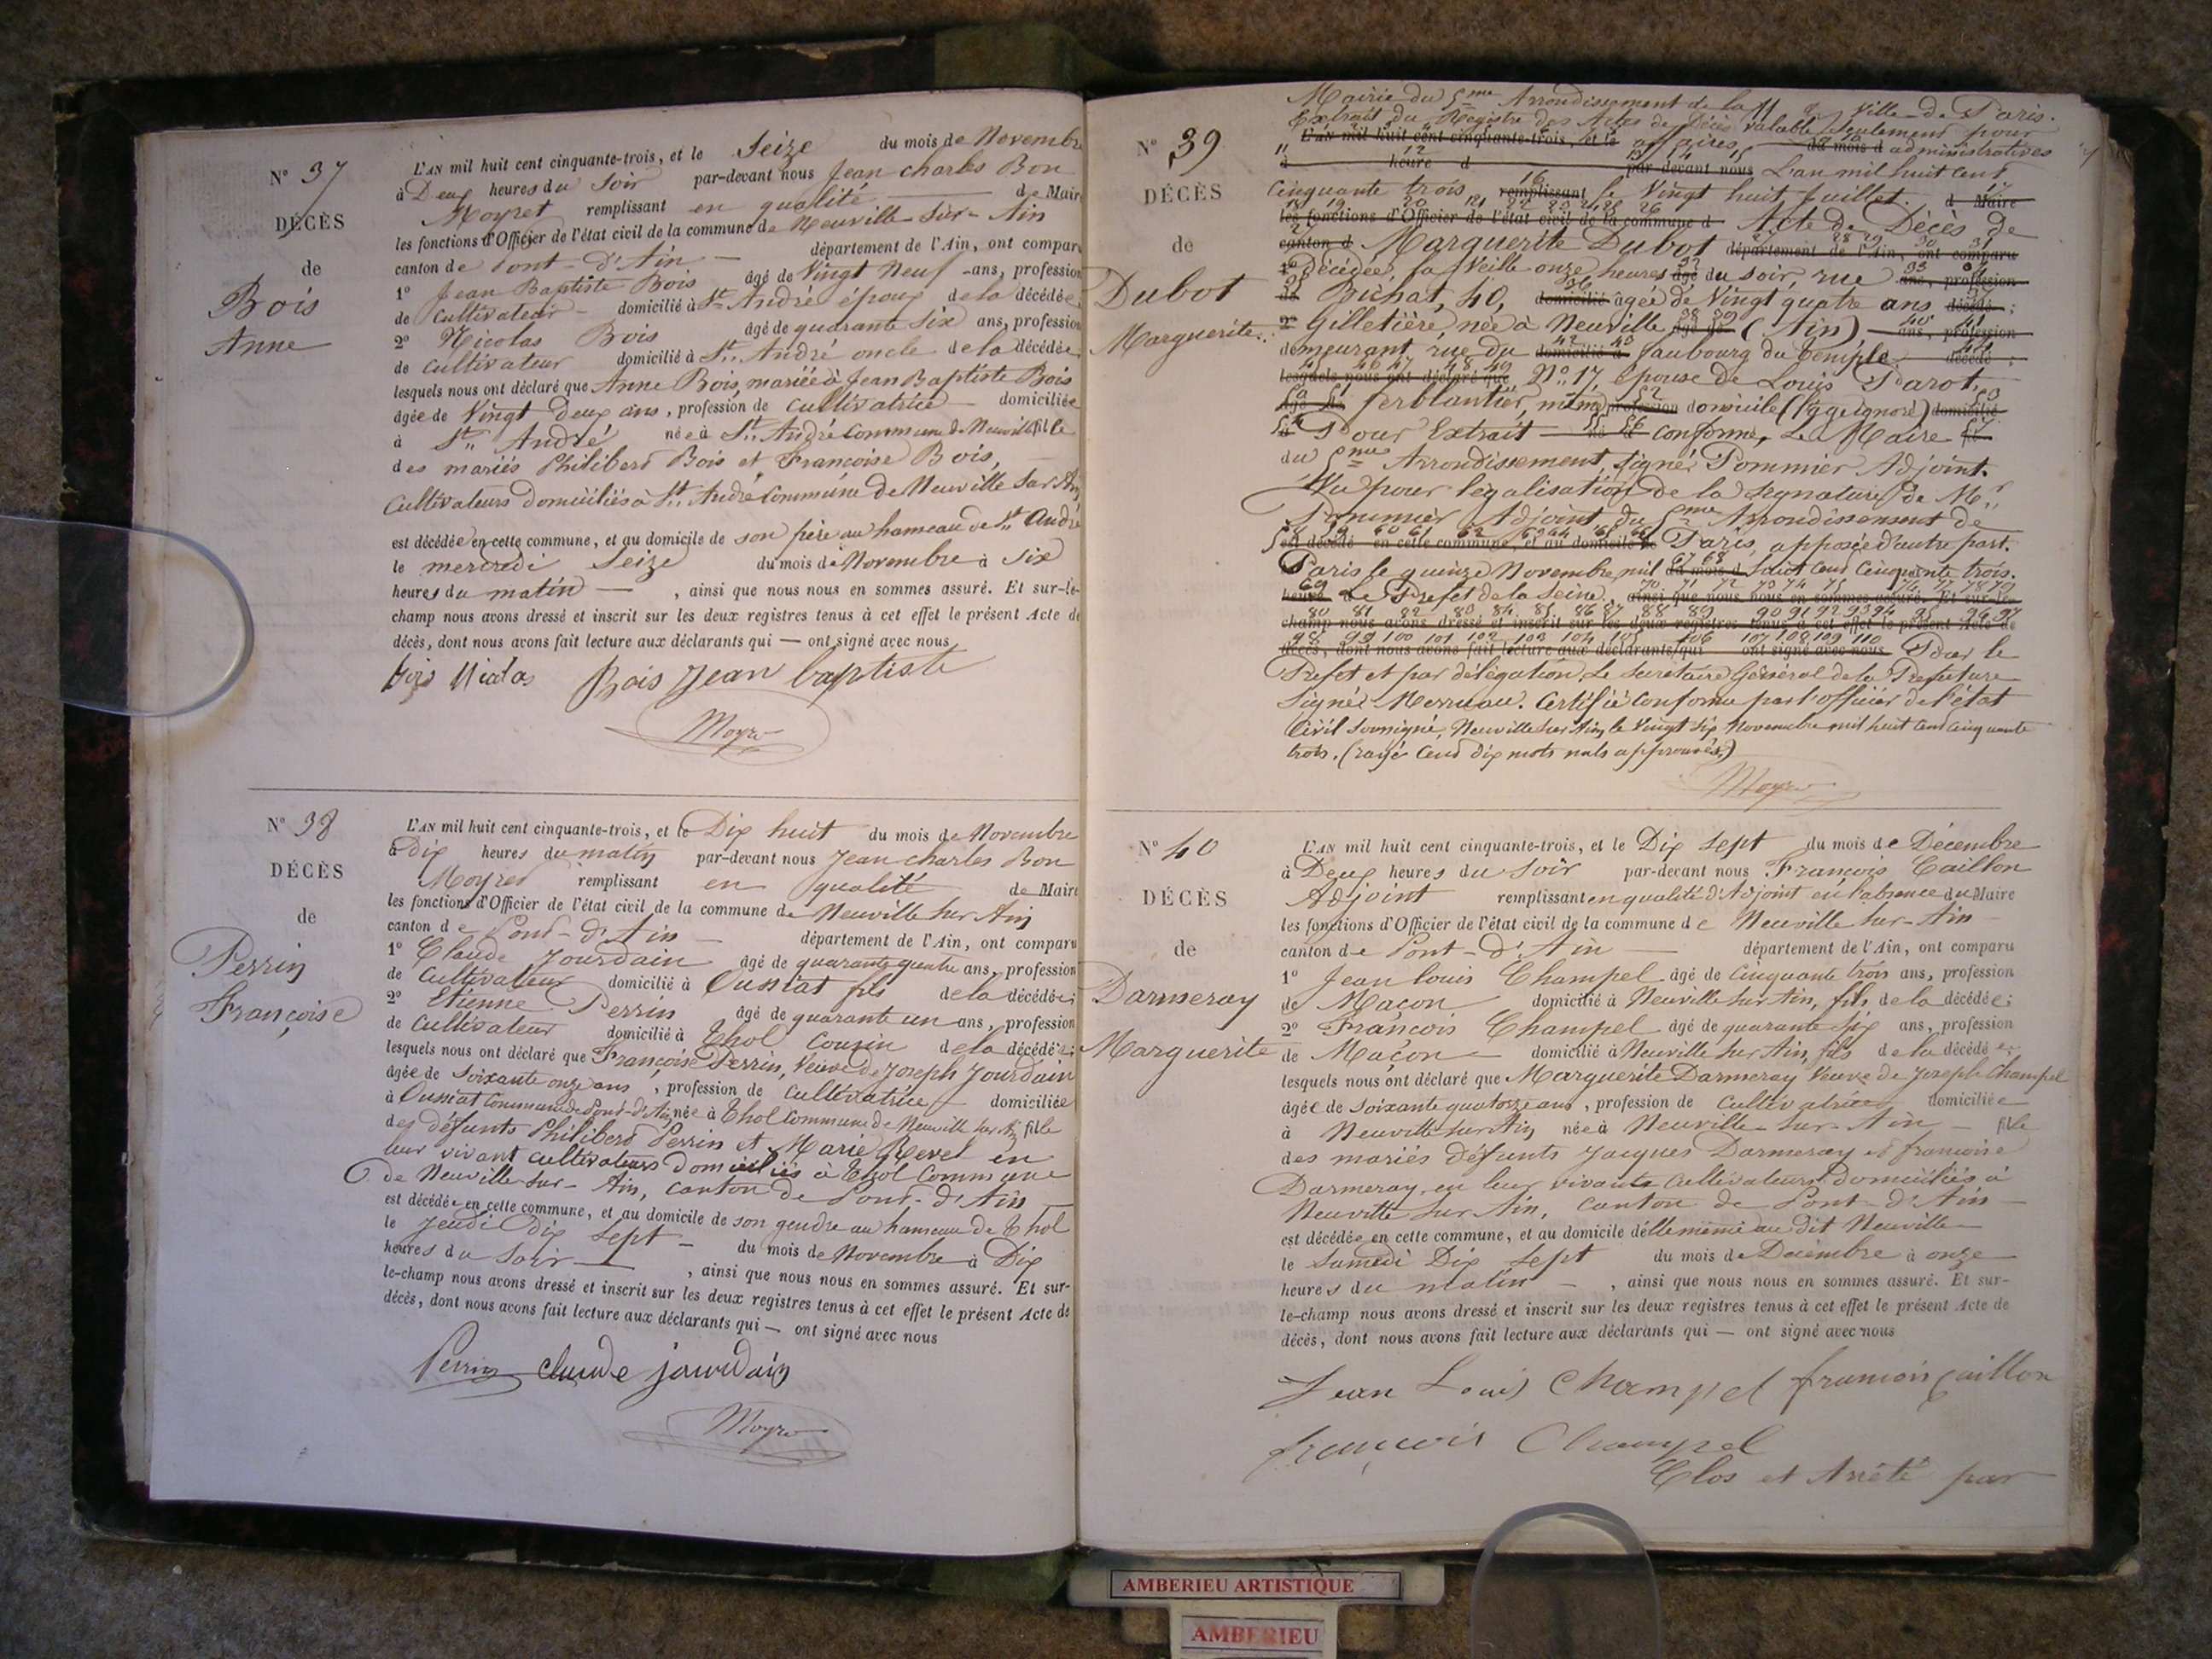 N° 37
DÉCÈS
de
Bois
Anne
L'AN mil huit cent cinquante-trois, et le Seize du mois de Novembre
à Deux heures du Soir par-devant nous Jean charles Bon
Moyret remplissant en qualité de Maire
les fonctions d'Officier de l'état civil de la commune de Neuville-sur-Ain
canton de Pont-d'Ain département de l'Ain, ont comparu
1° Jean Baptiste Bois âgé de Vingt Neuf ans, profession
de Cultivateur domicilié à St. André époux de la décédée;
2° Nicolas Bois âgé de quarante six ans, profession
de cultivateur domicilié à St. André oncle de la décédée;
lesquels nous ont déclaré que Anne Bois, mariée à Jean Baptiste Bois
âgée de Vingt deux ans, profession de cultivatrice domiciliée
à St. André née à St. André Commune de Neuville fille
des mariés Philibert Bois et Françoise Bois,
Cultivateurs domiciliés à St. André Commune de Neuville sur Ain
est décédée en cette commune, et au domicile de son père au hameau de St. André
le mercredi Seize du mois de Novembre à six
heures du matin, ainsi que nous nous en sommes assuré. Et sur-le-
champ nous avons dressé et inscrit sur les deux registres tenus à cet effet le présent Acte de
décès, dont nous avons fait lecture aux déclarants qui — ont signé avec nous
bois Nicolas Bois Jean baptiste
Moyret
N° 38
DÉCÈS
de
Perrin
Françoise
L'AN mil huit cent cinquante-trois, et le Dix huit du mois de Novembre
à Dix heures du matin par-devant nous Jean charles Bon
Moyret remplissant en qualité de Maire
les fonctions d'Officier de l'état civil de la commune de Neuville sur Ain
canton de Pont-d'Ain département de l'Ain, ont comparu
1° Claude Jourdain âgé de quarante quatre ans, profession
de Cultivateur domicilié à Oussiat fils de la décédée;
2° Etienne Perrin âgé de quarante un ans, profession
de Cultivateur domicilié à Thol Cousin de la décédée;
lesquels nous ont déclaré que Françoise Perrin, Veuve de Joseph Jourdain
âgée de soixante onze ans, profession de Cultivatrice domiciliée
à Oussiat Commune de Pont-d'Ain née à Thol Commune de Neuville sur Ain fille
des défunts Philibert Perrin et Marie Revel en
leur vivant cultivateurs domiciliés à Thol Commune
de Neuville sur-Ain, canton de Pont-d'Ain
est décédée en cette commune, et au domicile de son gendre au hameau de Thol
le Jeudi Dix Sept du mois de Novembre à Dix
heures du Soir, ainsi que nous nous en sommes assuré. Et sur-
le-champ nous avons dressé et inscrit sur les deux registres tenus à cet effet le présent Acte de
décès, dont nous avons fait lecture aux déclarants qui — ont signé avec nous
Perrin claude jourdain
Moyret
N° 39
DÉCÈS
de
Dubot
Marguerite
Mairie du 5me Arrondissement de la Ville de Paris.
Extrait du Registre des Actes de Décès valable seulement pour
L'AN mil huit cent cinquante-trois, et le affaires du mois d administratives
à heure d par-devant nous L'an mil huit cent
Cinquante trois remplissant le Vingt huit Juillet. d Maire
les fonctions d'Officier de l'état civil de la commune d Acte de Décès de
canton d Marguerite Dubot département de l'Ain, ont comparu
1° Décédée, la Veille onze heures âgé du soir, rue ans, profession
de Bichat, 40, domicilié âgée de Vingt quatre ans décédé;
2° Gilletière, née à Neuville âgé de (Ain) ans, profession
demeurant rue du domicilié à faubourg du Temple décédé;
lesquels nous ont déclaré que N° 17, épouse de Louis Parot,
âgé de ferblantier, même profession domicile (l'âge ignoré) domicilié
à Pour Extrait né à conforme, Le Maire fi
du 5me Arrondissement, signé Pommier Adjoint.
Vu pour légalisation de la signature de Mr.
Pommier Adjoint du 5me Arrondissement de
est décédé en cette commune, et au domicile de Paris, apposée d'autre part.
Paris le quinze Novembre mil du mois d huit cent cinquante trois.
heure Le Préfet de la Seine, ainsi que nous nous en sommes assuré. Et sur-le-
champ nous avons dressé et inscrit sur les deux registres tenus à cet effet le présent Acte de
décès, dont nous avons fait lecture aux déclarants qui ont signé avec nous Pour le
Préfet et par délégation, Le Secrétaire Général de la Préfecture
Signé Merruau. Certifié conforme par l'officier de l'état
Civil soussigné, Neuville sur Ain, le Vingt six Novembre mil huit cent cinquante
trois. (rayé cent dix mots nuls approuvés.)
Moyret
N° 40
DÉCÈS
de
Darmeray
Marguerite
L'AN mil huit cent cinquante-trois, et le Dix Sept du mois de Décembre
à Deux heures du Soir par-devant nous François Caillon
Adjoint remplissant en qualité d'Adjoint en l'absence du Maire
les fonctions d'Officier de l'état civil de la commune de Neuville sur-Ain
canton de Pont-d'Ain département de l'Ain, ont comparu
1° Jean louis Champel âgé de Cinquante trois ans, profession
de Maçon domicilié à Neuville sur Ain, fils de la décédée;
2° François Champel âgé de quarante Six ans, profession
de Maçon domicilié à Neuville sur Ain, fils de la décédée
lesquels nous ont déclaré que Marguerite Darmeray Veuve de Joseph Champel
âgée de soixante quatorze ans, profession de Cultivatrice domiciliée
à Neuville sur Ain née à Neuville-sur-Ain fille
des mariés défunts Jacques Darmeray et françoise
Darmeray en leur vivants cultivateurs domiciliés à
Neuville sur Ain, canton de Pont-d'Ain
est décédée en cette commune, et au domicile d'éllemême au dit Neuville
le Samedi Dix Sept du mois de Décembre à onze
heures du matin, ainsi que nous nous en sommes assuré. Et sur-
le-champ nous avons dressé et inscrit sur les deux registres tenus à cet effet le présent Acte de
décès, dont nous avons fait lecture aux déclarants qui — ont signé avec nous
Jean Louis Champel françois Caillon
françois Champel
Clos et Arrêté par
AMBERIEU ARTISTIQUE
AMBERIEU